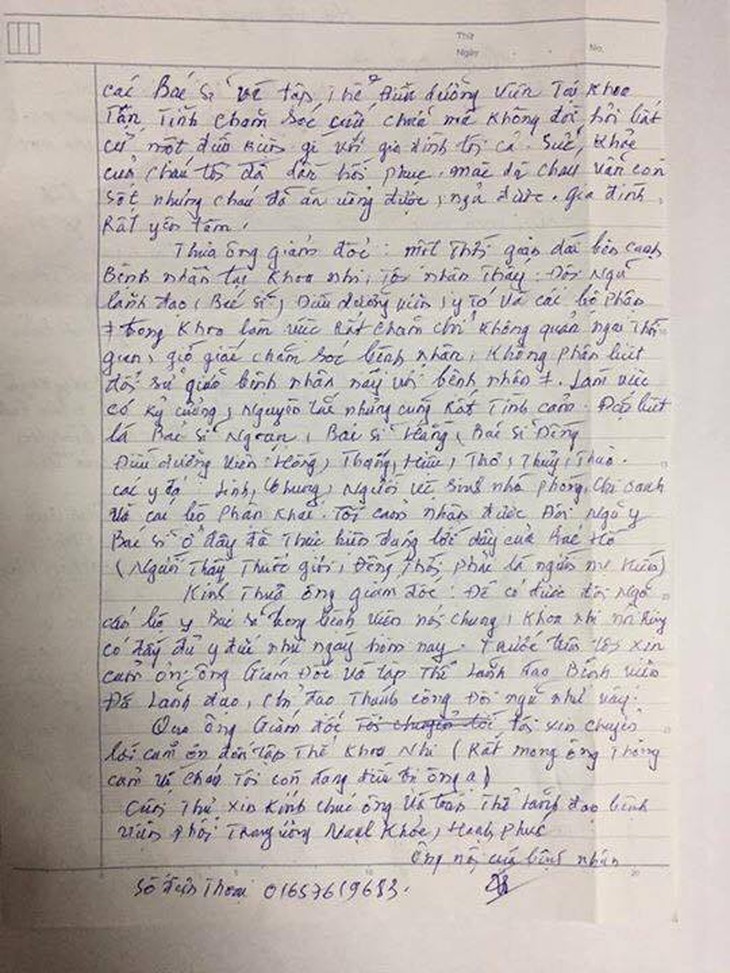 Thứ
Ngày No.
các Bác sĩ và tập thể Điều dưỡng viên Tại Khoa
Tận Tình chăm sóc cứu chữa mà không đòi hỏi bất
cứ một điều kiện gì với gia đình tôi cả. Sức khỏe
của cháu tôi đã dần hồi phục. mặc dù cháu vẫn còn
sốt nhưng cháu đã ăn uống được, ngủ được. Gia đình
Rất yên tâm.
Thưa ông giám đốc: một thời gian dài bên cạnh
Bệnh nhân tại Khoa nhi, Tôi nhận Thấy: Đội Ngũ
lãnh đạo, Bác sĩ, Điều dưỡng viên, y tá và các bộ phận
≠ trong Khoa làm việc Rất chăm chỉ không quản ngại thời
gian, giờ giấc chăm sóc bệnh nhân, Không phân biệt
đối sử giữa bệnh nhân này với bệnh nhân ≠. Làm việc
có kỷ cương, nguyên tắc nhưng cũng Rất Tình cảm. Đặc biệt
là Bác sĩ Ngoan, Bác sĩ Hằng, Bác sĩ Dũng
Điều dưỡng viên: Hồng, Thắng, Hiếu, Thơ, Thủy, Thảo.
các y tá: Linh, Chung, Người vệ sinh nhà phòng, Chị oanh
và các bộ phận khác. Tôi cảm nhận được Đội Ngũ y
Bác sĩ ở đây đã Thực hiện đúng lời dạy của Bác Hồ
(Người Thầy Thuốc giỏi, Đồng Thời phải là người mẹ hiền)
Kính Thưa ông giám đốc: Để có được đội ngũ
cán bộ y Bác sĩ trong bệnh viện nói chung, Khoa nhi nói Riêng
có đầy đủ y đức như ngày hôm nay. Trước tiên Tôi xin
cảm ơn: ông Giám Đốc Và tập Thể Lãnh đạo Bệnh viện
Đã Lãnh đạo, chỉ đạo Thành công Đội ngũ như vậy.
Qua ông Giám đốc tôi xin chuyển
lời cảm ơn đến tập Thể Khoa Nhi (Rất mong ông Thông
cảm vì cháu Tôi còn đang điều trị ông ạ)
Cuối Thư xin Kính chúc ông Và toàn Thể lãnh đạo bệnh
viện phổi Trung ương Mạnh Khỏe, Hạnh phúc
Ông nội của bệnh nhân
Số điện Thoại 01657619683.